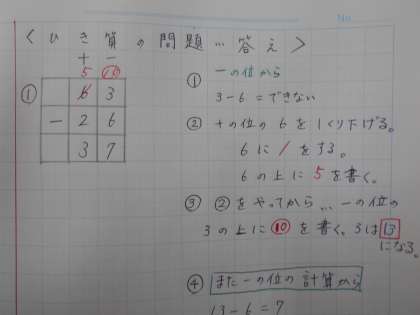 ＜ひき算の問題…答え＞
十 一
5 10
① 6 3
− 2 6
3 7
① 一の位から
3−6=できない
② 十の位の6を1くり下げる。
6に/をする。
6の上に5を書く。
③ ②をやってから…一の位の
3の上に⑩を書く、3は13
になる。
④ また一の位の計算から
13−6=7